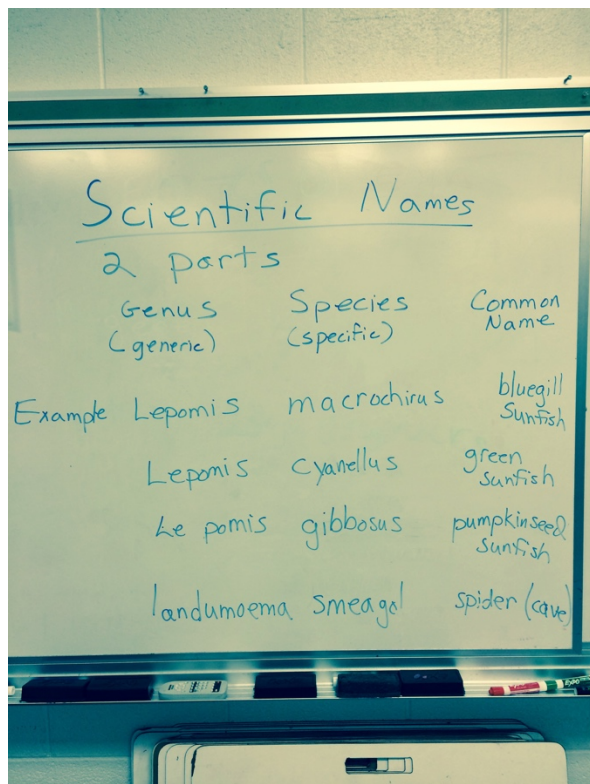 Scientific Names
2 parts
Genus Species Common Name
(generic) (specific)
Example Lepomis macrochirus bluegill Sunfish
Lepomis cyanellus green sunfish
Lepomis gibbosus pumpkinseed sunfish
landumoema smeagol spider (cave)
EXPO